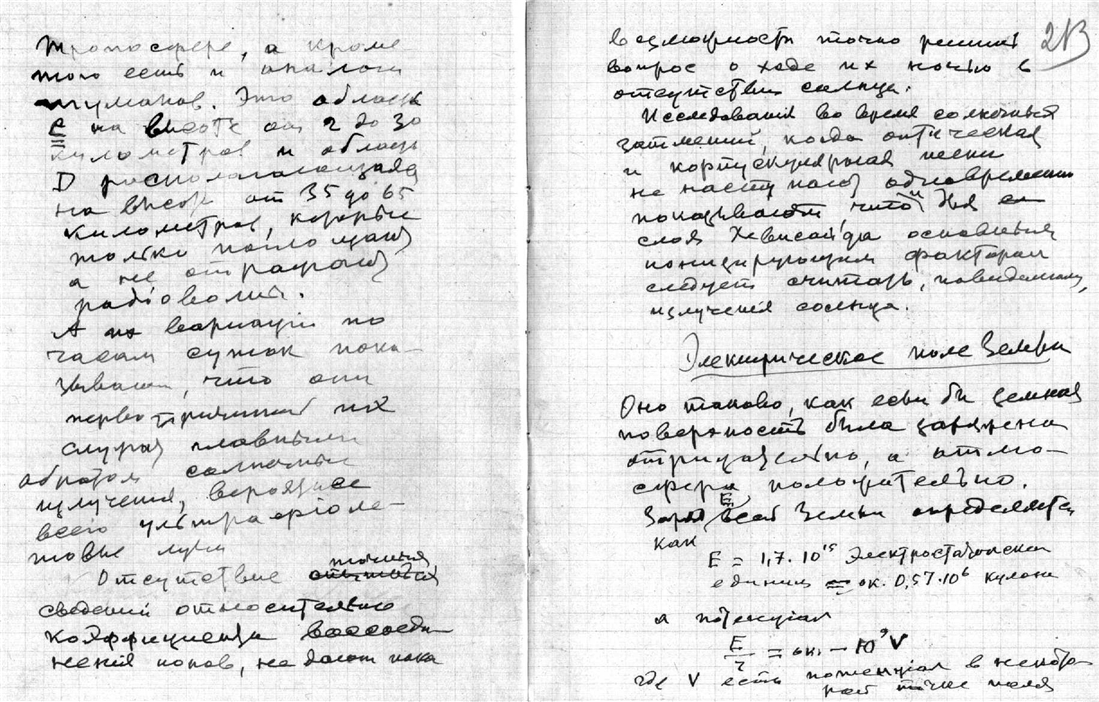 тропосфере, а кроме
того есть и аналоги
туманов. Это область
C на высоте от 2 до 30
километров и область
D располагающаяся
на высоте от 35 до 65
километров, которые
только поглощают
а не отражают
радiоволны.
А их варiацiи по
часам суток пока-
зывают, что они
первопричиной их
служат главным
образом солнечные
излученiя, вероятнее
всего ультрафiоле-
товые лучи
Отсутствие точных
сведений относительно
коэффициента воссоеди-
ненiя ионов, не дают пока
213
возможности точно решить
вопрос о ходе их ночью в
отсутствии солнца.
Исследованiя во время солнечных
затмений, когда оптическая
и корпускулярная
не наступают одновременно
показывают, что и для
слоя Хевисайда основным
ионизирующим фактором
следует считать, повидимому,
излученiя солнца.
Электрическое поле Земли
Оно таково, как если бы земная
поверхность была заряжена
отрицательно, а атмо-
сфера положительно.
Заряд E всей Земли определяется
как
E = 1,7 . 10¹⁵ Электростатических
единиц = ок. 0,57.10⁶ кулона
а потенцiал
E/r = ок. – 10⁹ V
где V есть потенцiал в некото-
рой точке поля